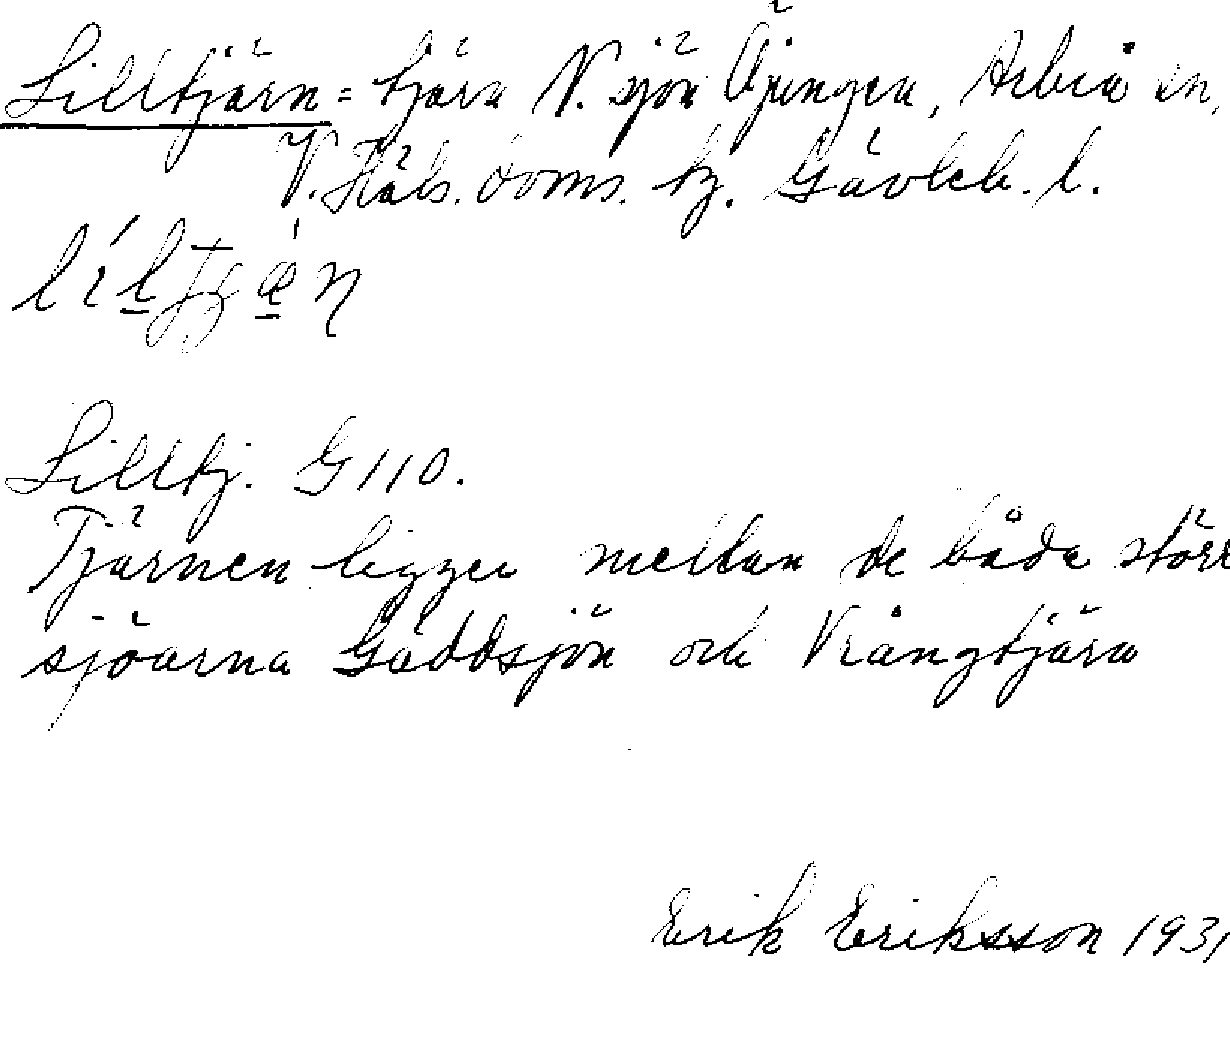 Lilltjärn = tjärn N. sjön Öjungen, Arbrå sn,
V. Häls. doms. hg. Gävleb. l.
Lilltj. G 110.
Tjärnen ligger mellan de båda större
sjöarna Gäddsjön och Vrångtjärn
Erik Eriksson 1931